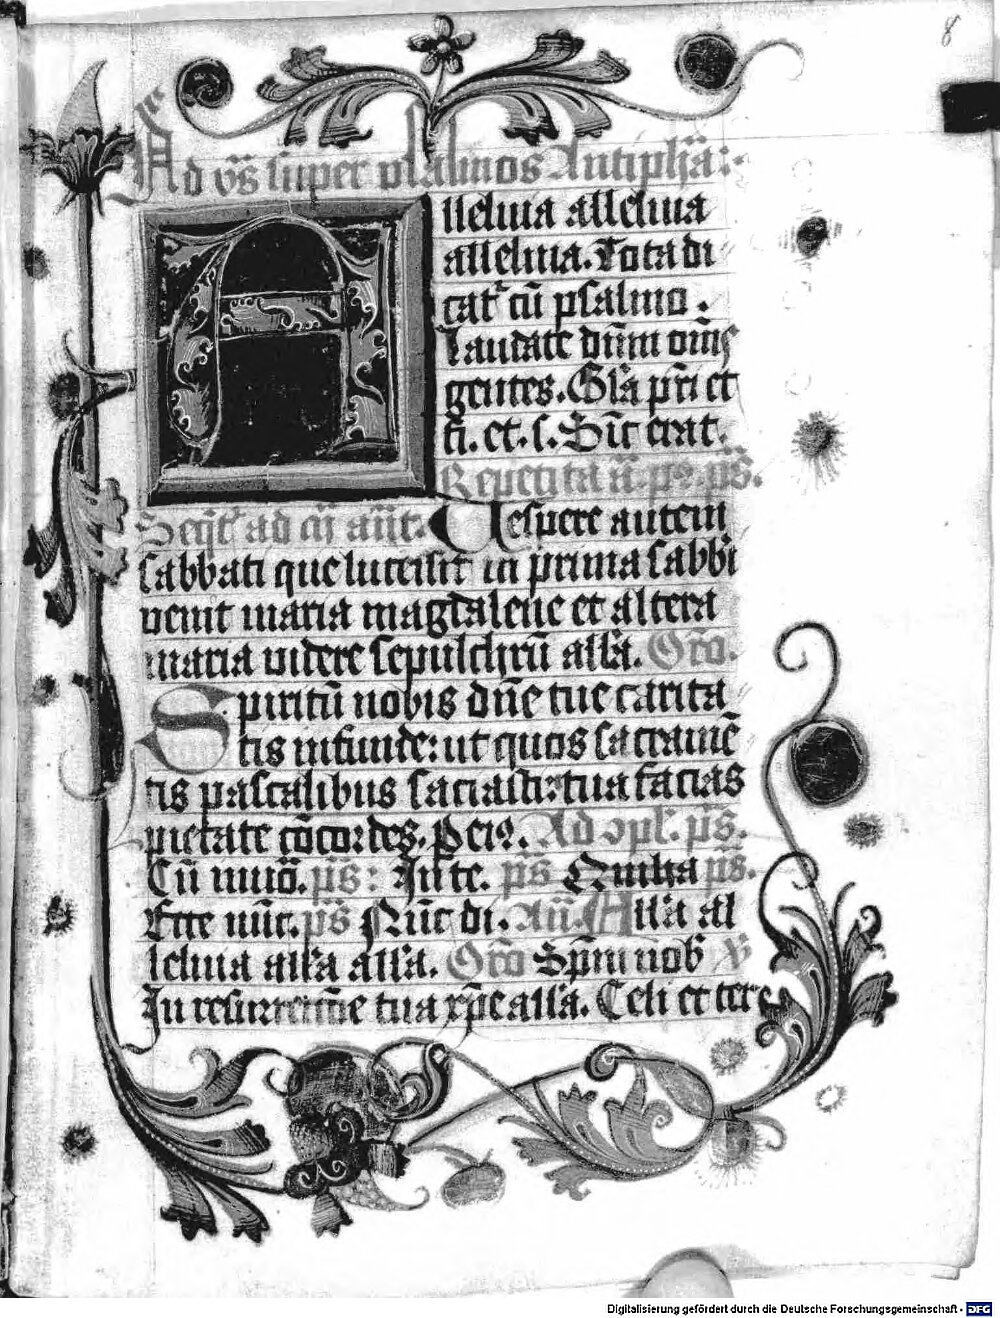 8
Ad vs̄ super psalmos Antiphā:
Alleluia alleluia
alleluia. Tota di
cat͛ cū psalmo.
Laudate dn̄m om̄s
gentes. Gl̄a pr̄i et
fi. et. s. Sic̄ erat.
Repetita ā. ps. ps̄.
ad añt. Uespere autem
sabbati que lucescit in prima sabb̄i
venit maria magdalene et altera
maria videre sepulchrū all̄a. Or̄o.
Spiritū nobis dn̄e tue carita
tis infunde: ut quos sacramē
tis pascalibus saciasti: tua facias
pietate cōcordes. Per. Ad ↄpl. ps̄.
Cū inuo. ps̄: In te. ps̄ Qui hita ps̄.
Ecce nūc. ps̄ Nūc di. An̄ All̄a al
leluia all̄a all̄a. Or̄o Sp̄m nob̄ v̄
In resurrectiōe tua xp̄e all̄a. Celi et terr
Digitalisierung gefördert durch die Deutsche Forschungsgemeinschaft - DFG